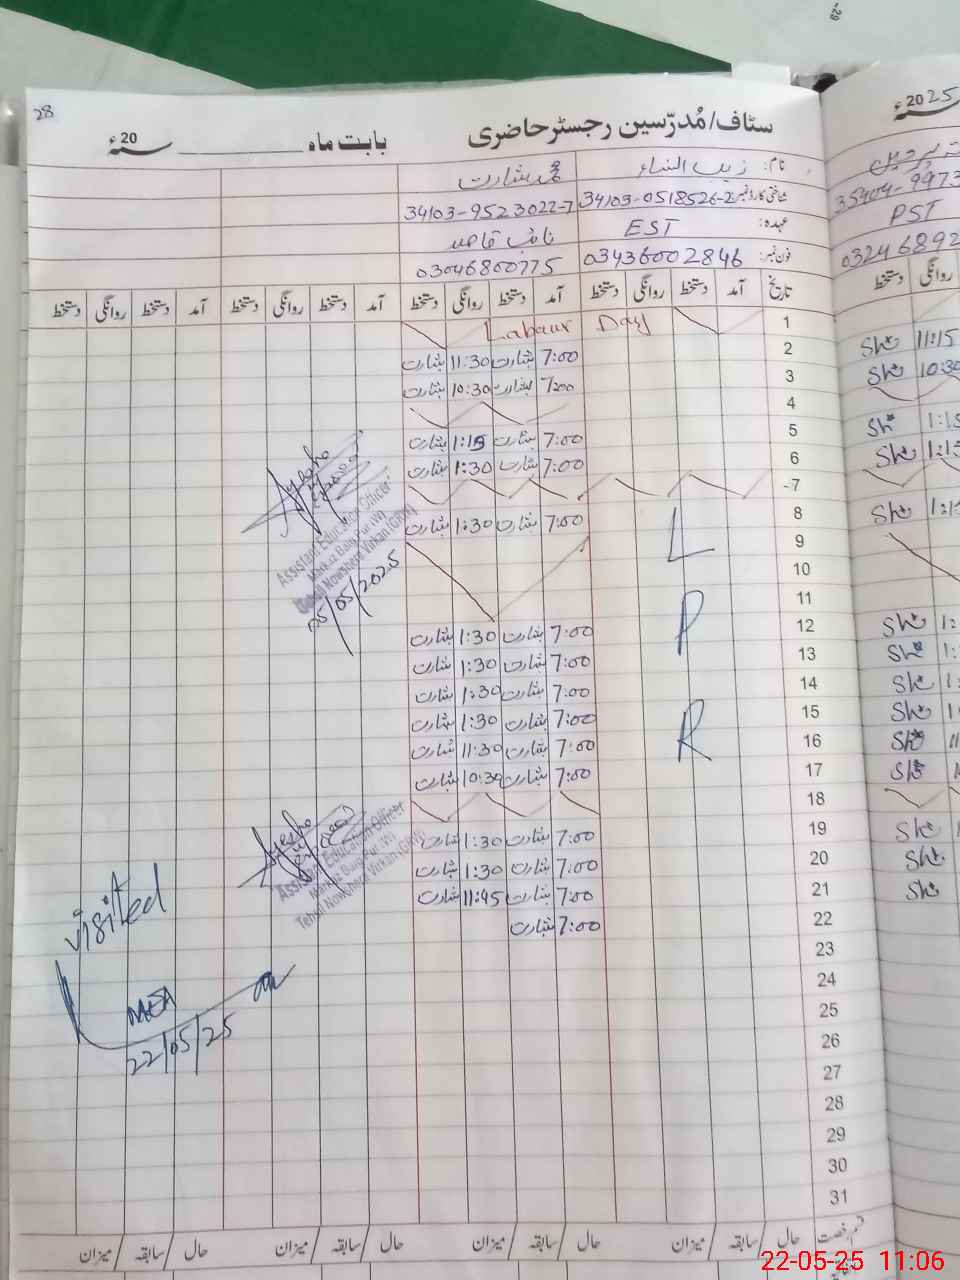 28
سٹاف/مُدرّسین رجسٹر حاضری بابت ماہ ____________ 20 سنہء
نام: زیب النساء محمد بشارت
شناختی کارڈ نمبر: 34103-0518526-2 34103-9523022-7
عہدہ: EST نائب قاصد
فون نمبر: 03436002846 03046800775
تاریخ آمد دستخط روانگی دستخط آمد دستخط روانگی دستخط آمد دستخط روانگی دستخط آمد دستخط روانگی دستخط
1 Labour Day
2 7:00 بشارت 11:30 بشارت
3 7:00 بشارت 10:30 بشارت
4
5 7:00 بشارت 1:15 بشارت
6 7:00 بشارت 1:30 بشارت
7
8 7:00 بشارت 1:30 بشارت
9 L
10
11
12 P 7:00 بشارت 1:30 بشارت
13 7:00 بشارت 1:30 بشارت
14 7:00 بشارت 1:30 بشارت
15 7:00 بشارت 1:30 بشارت
16 R 7:00 بشارت 11:30 بشارت
17 7:00 بشارت 10:30 بشارت
18
19 7:00 بشارت 1:30 بشارت
20 7:00 بشارت 1:30 بشارت
21 7:00 بشارت 11:45 بشارت
22 7:00 بشارت
23
24
25
26
27
28
29
30
31
Ayesha
Assistant Education Officer
Tehsil Nowshera Virkan (GRW)
05/05/2025
Ayesha
Assistant Education Officer
Tehsil Nowshera Virkan (GRW)
visited
MEA
22/05/25
قسم رخصت حال سابقہ میزان حال سابقہ میزان حال سابقہ میزان حال سابقہ میزان
سنہء 2025
35404-9973
PST
03246892
روانگی دستخط
11:15
10:30
1:15
22-05-25 11:06